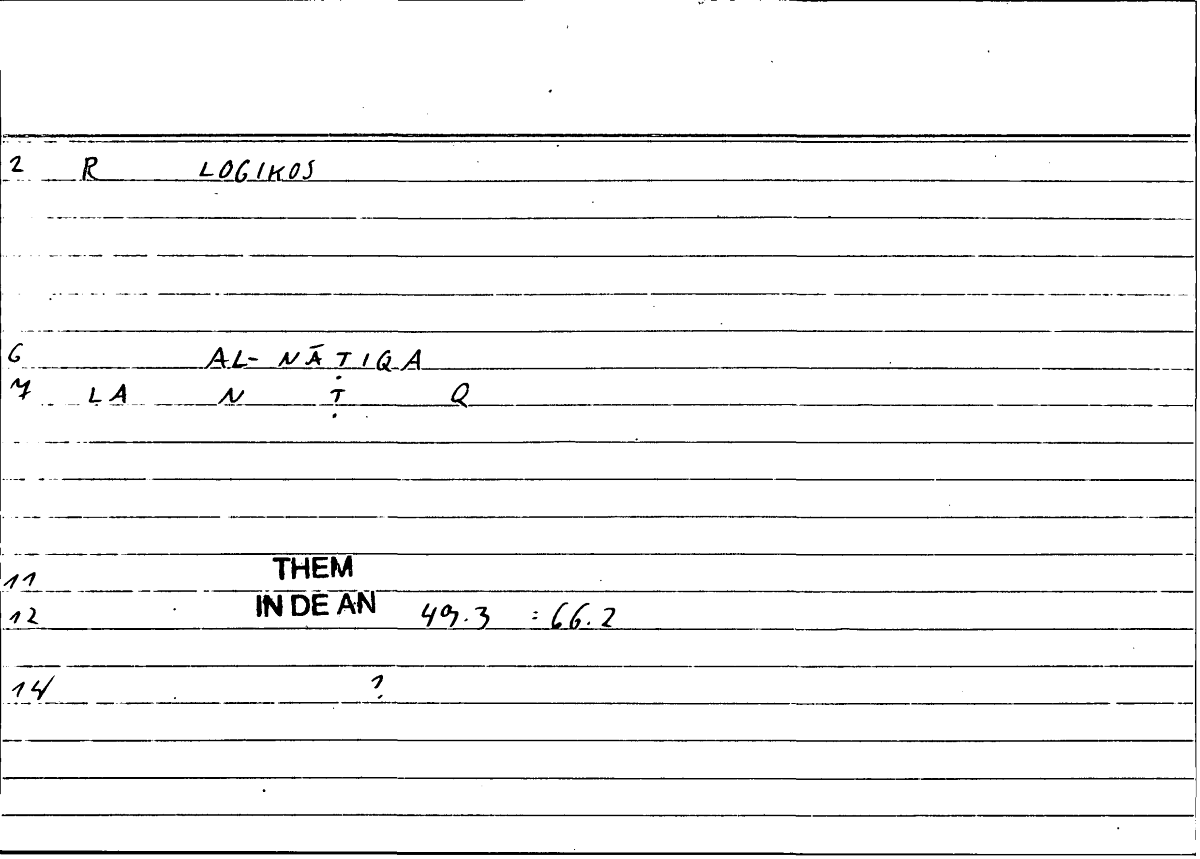 2 R LOGIKOS
6 AL-NĀṬIQA
7 LA N Ṭ Q
11 THEM
12 IN DE AN 49.3 :66.2
14 ?